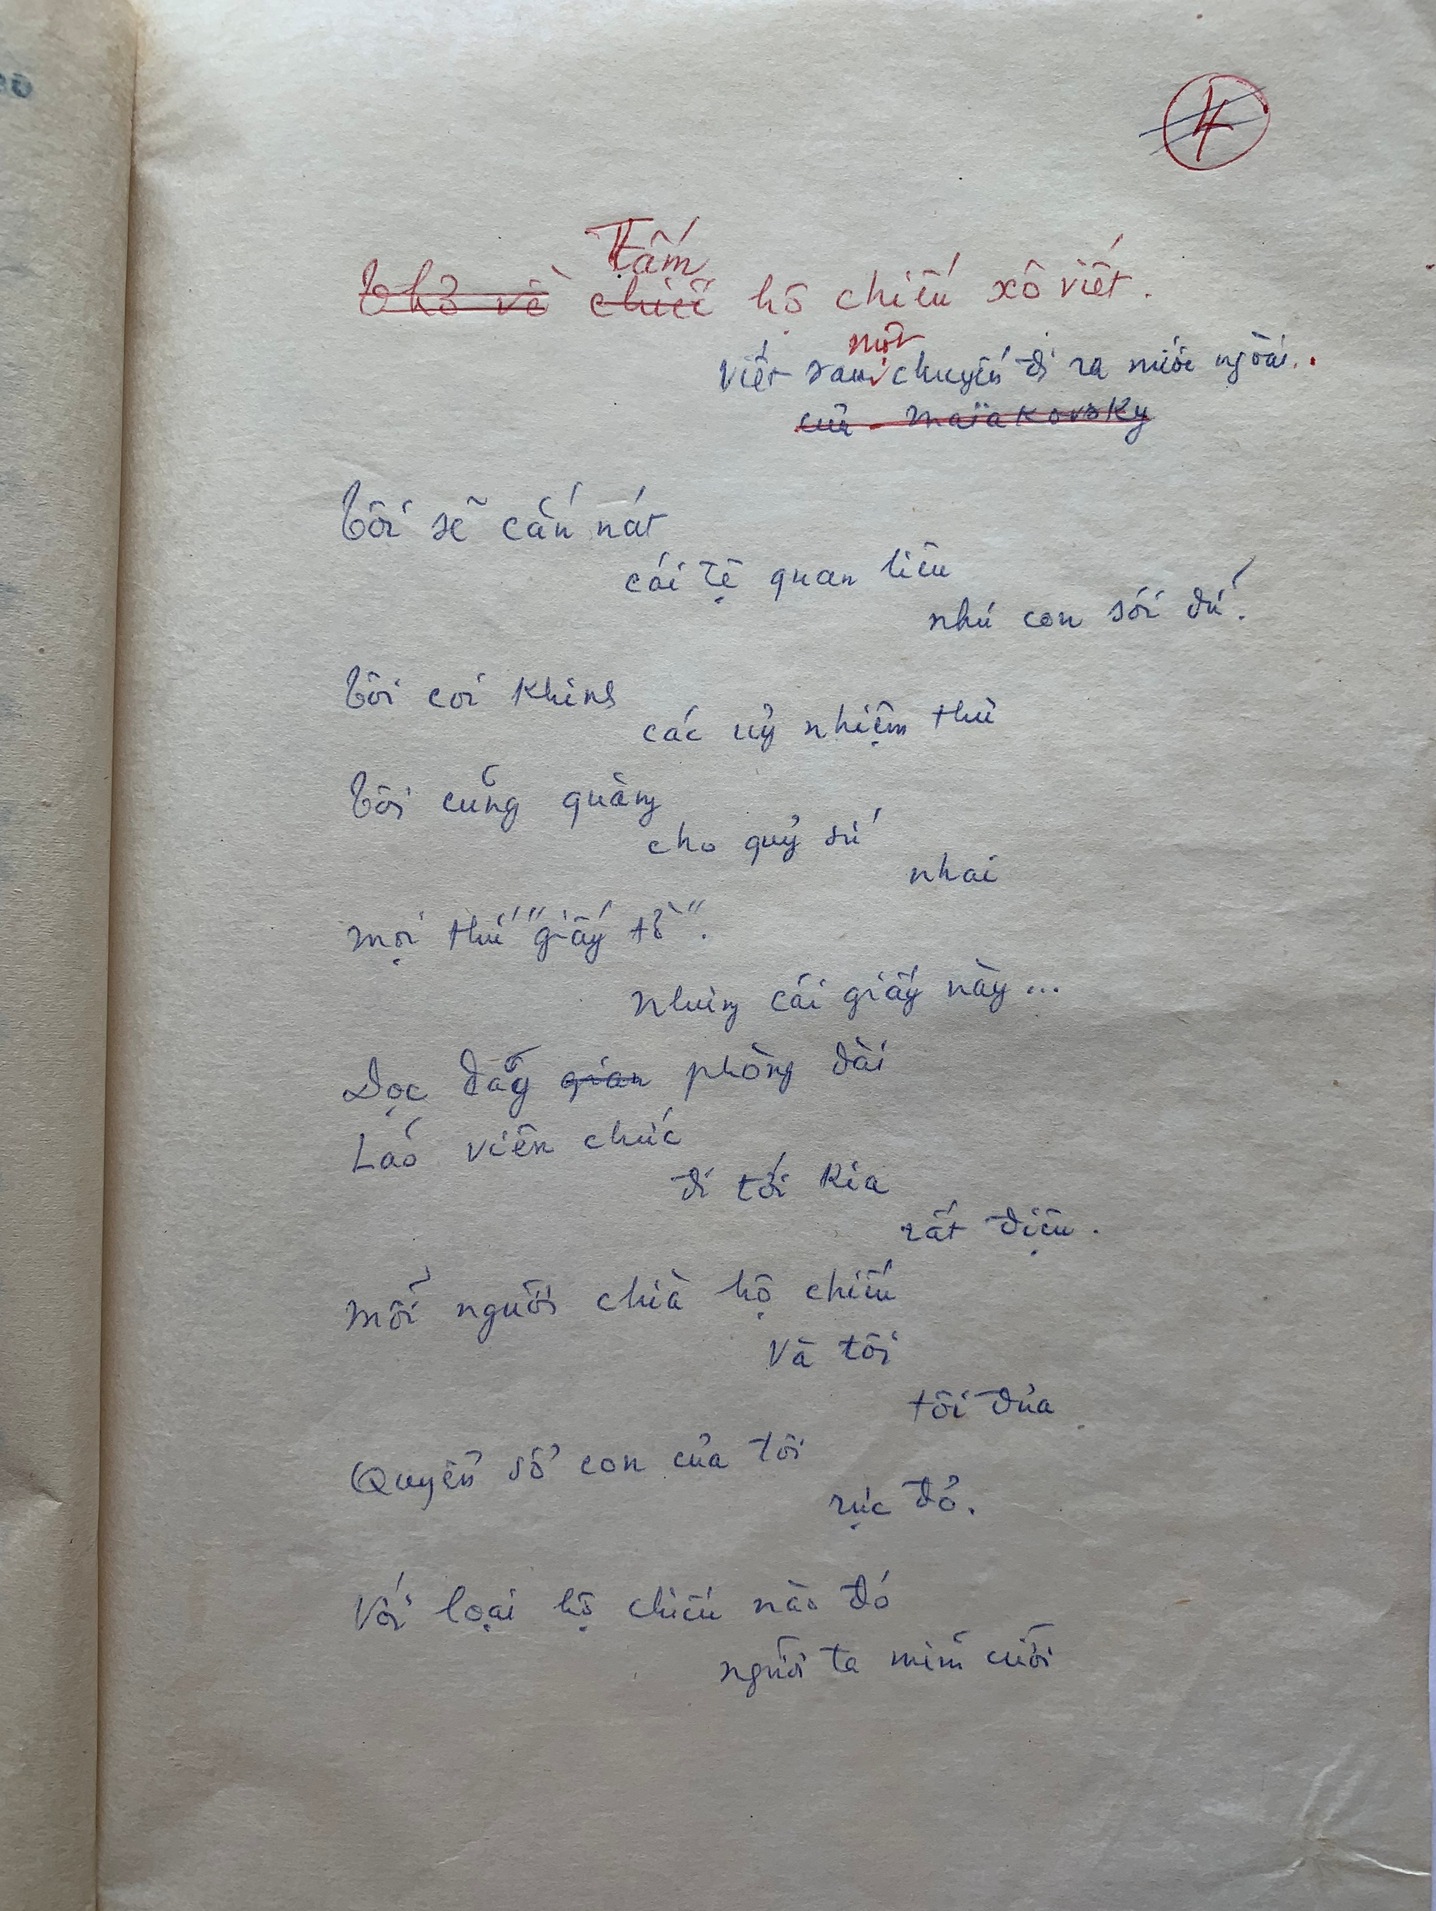 4
Tấm
Thơ về chiếc hộ chiếu xô viết.
một
viết sau chuyến đi ra nước ngoài.
của Maïakovsky
Tôi sẽ cắn nát
cái tệ quan liêu
như con sói dữ.
Tôi coi khinh
các uỷ nhiệm thư
Tôi cũng quẳng
cho quỷ sứ
nhai
mọi thứ "giấy tờ".
Nhưng cái giấy này...
Dọc dẫy gian phòng dài
Lão viên chức
đi tới kia
rất điệu.
Mỗi người chìa hộ chiếu
Và tôi
tôi đưa
Quyển sổ con của tôi
rực đỏ.
Với loại hộ chiếu nào đó
người ta mỉm cười